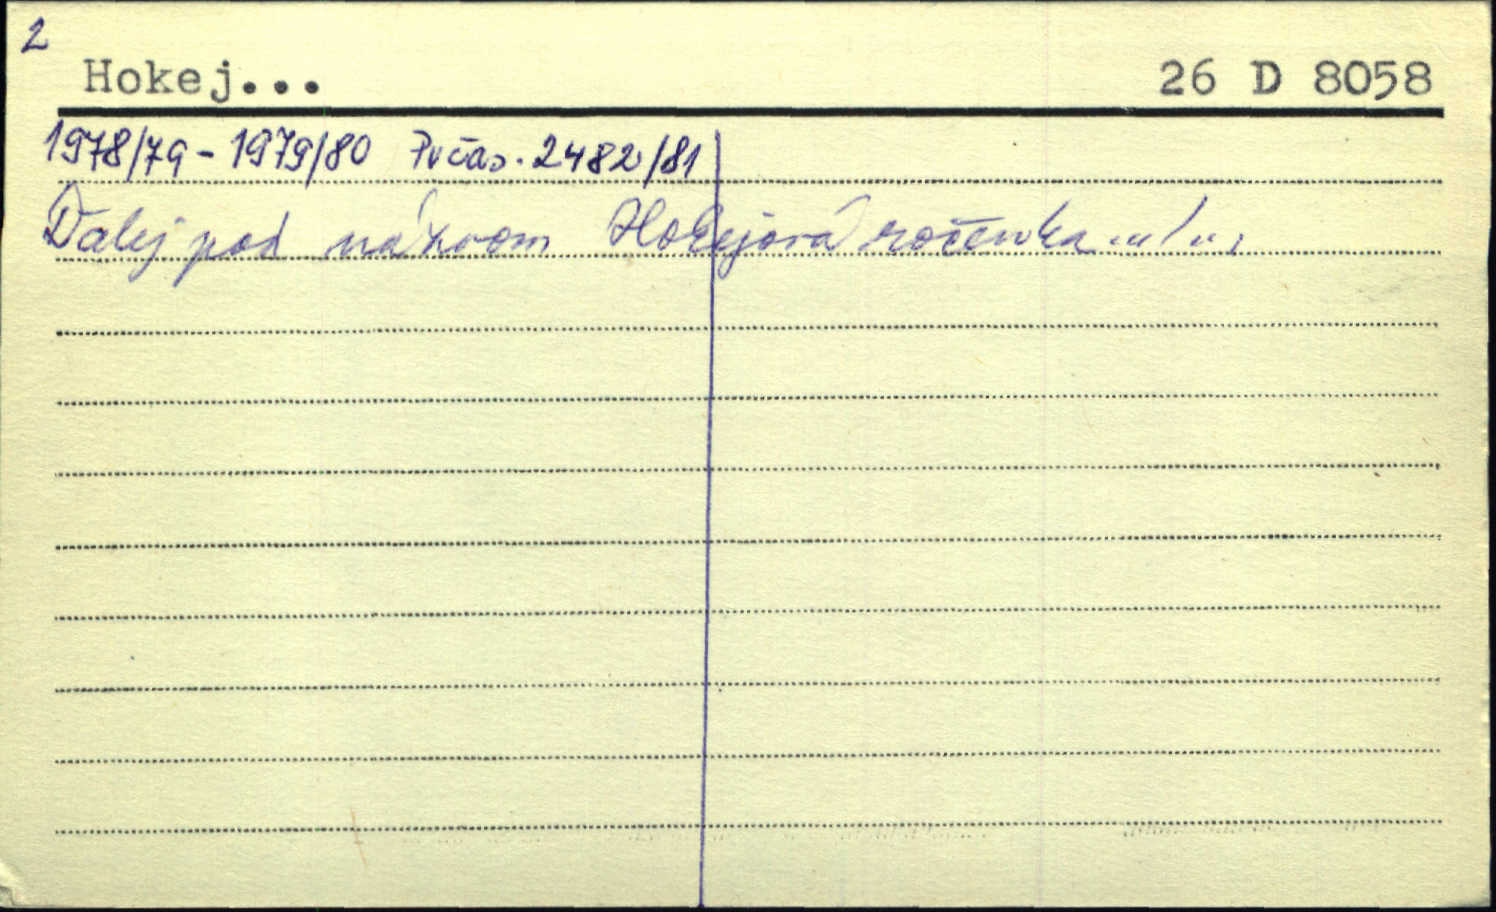 2
Hokej... 26 D 8058
1978/79 - 1979/80 Pv čas. 2482/81
Ďalej pod názvom Hokejová ročenka ../..